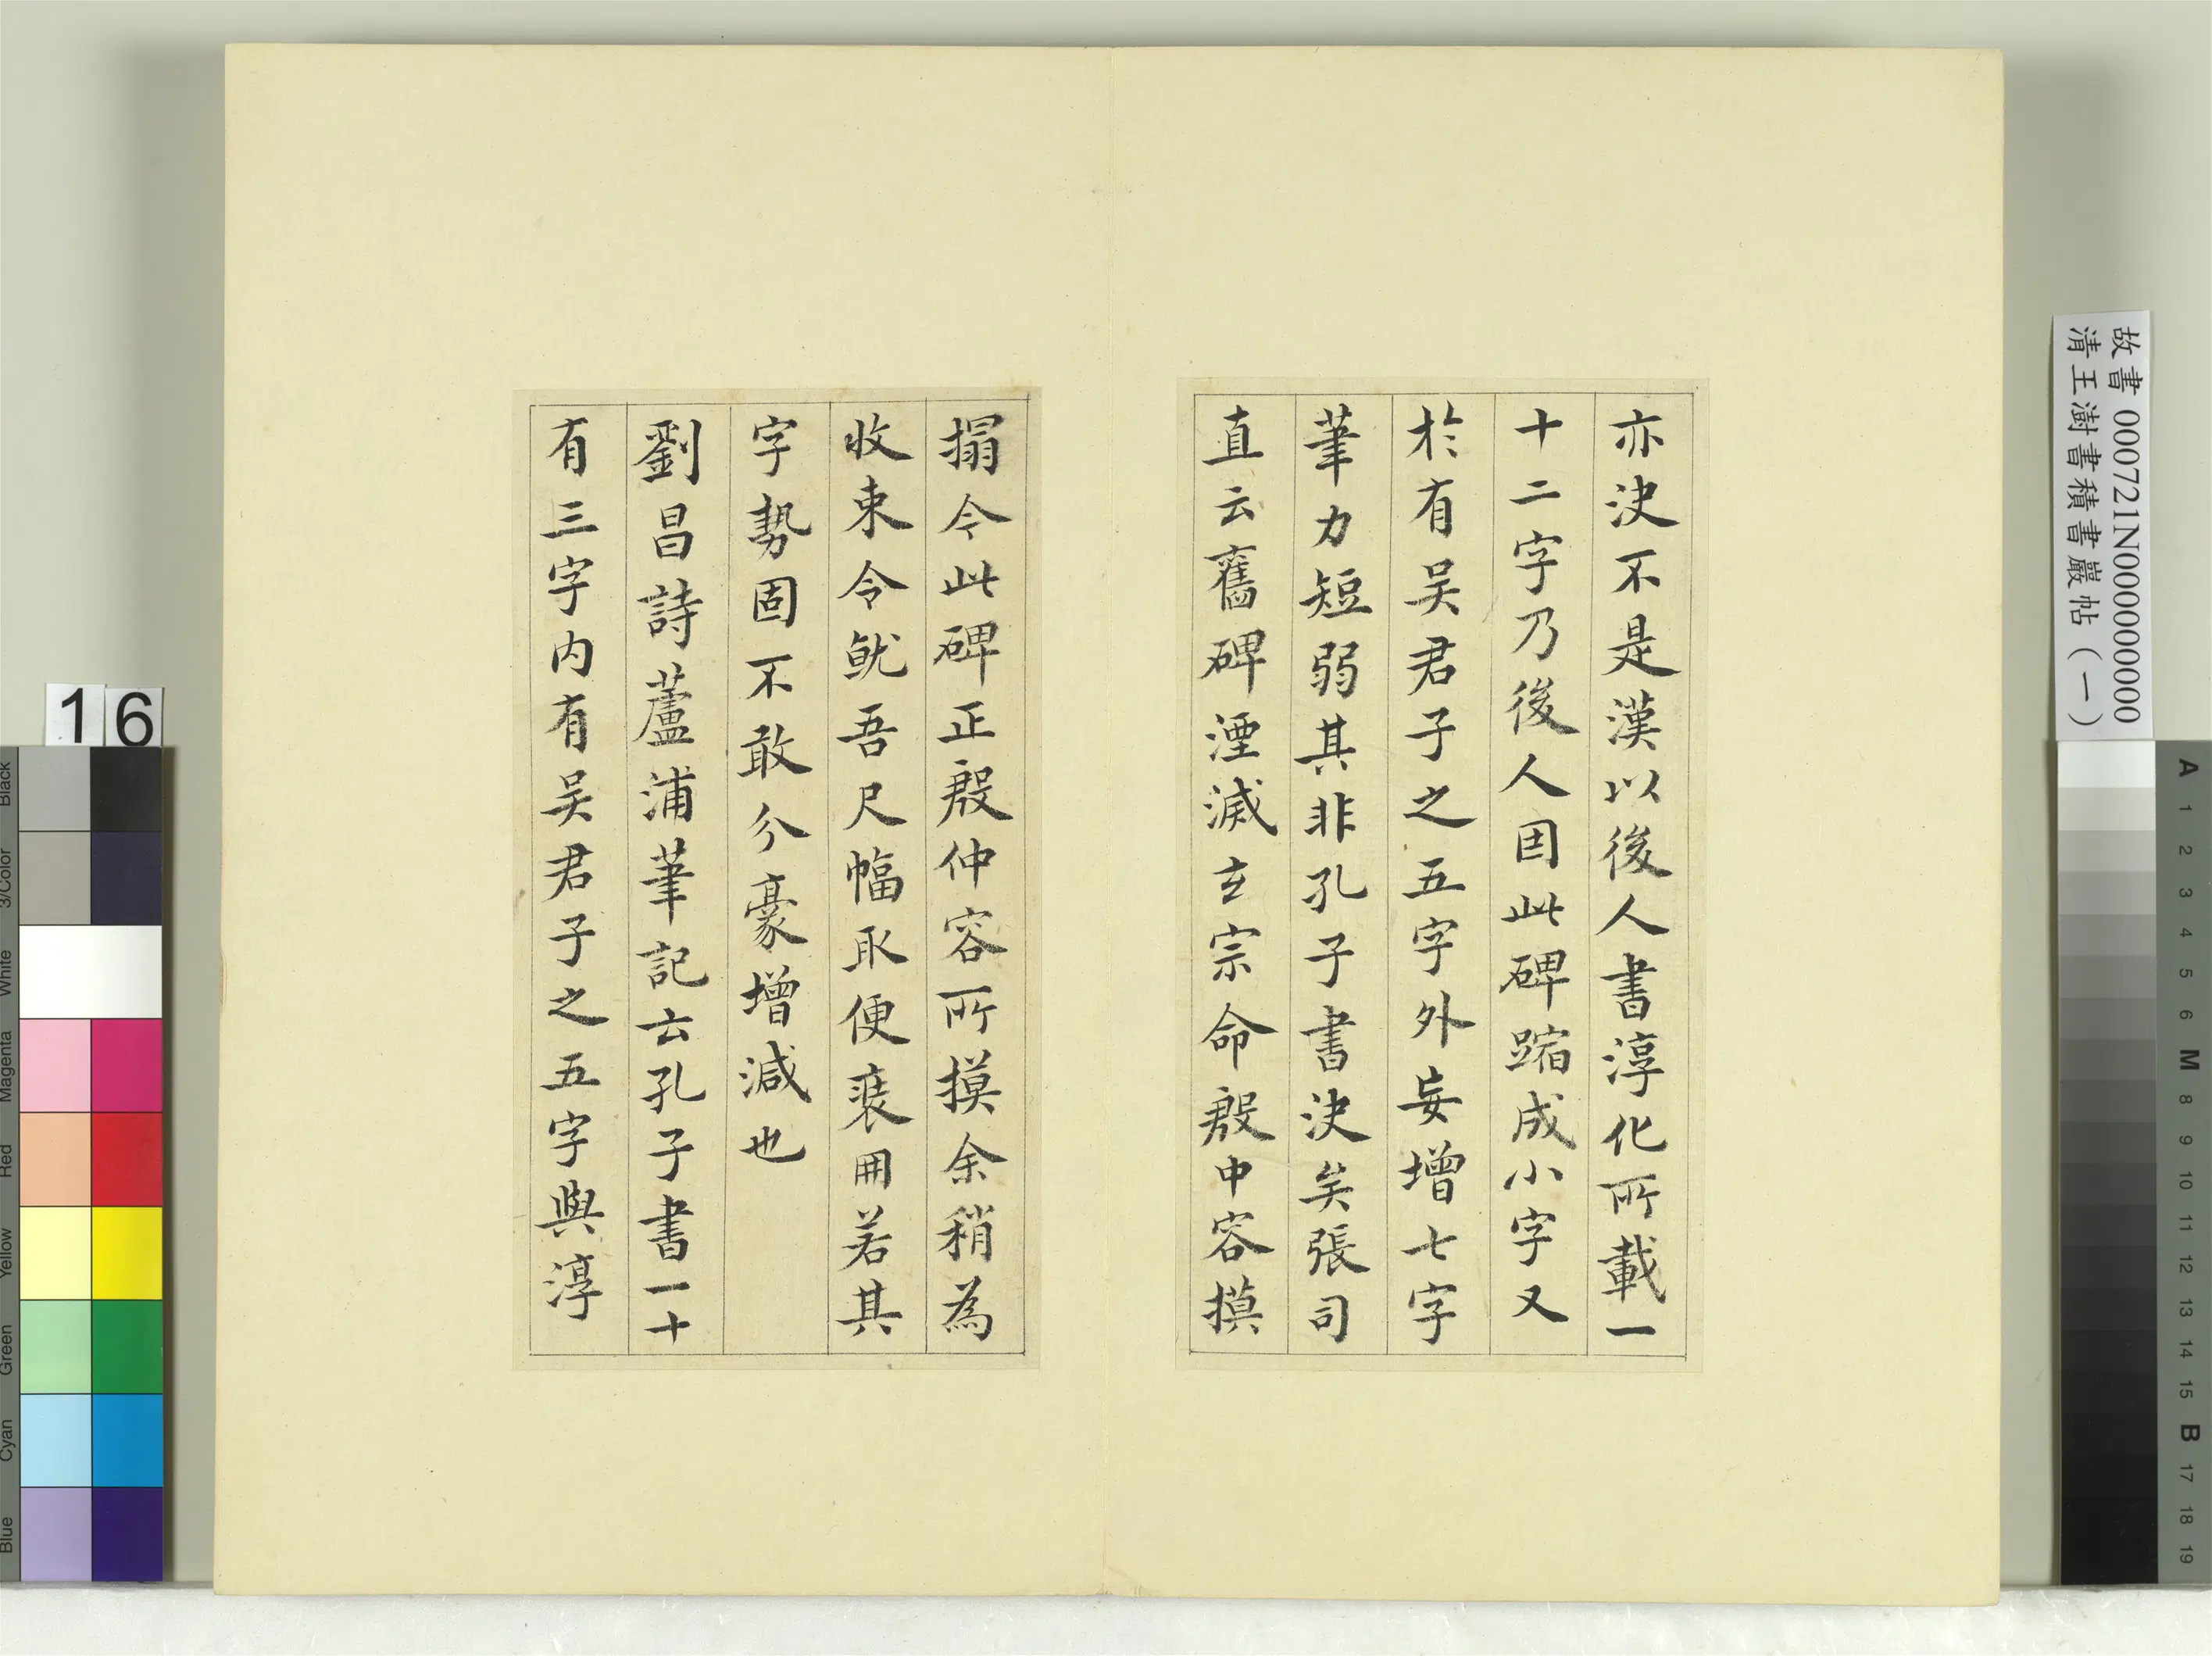 亦決不是漢以後人書淳化所載一
十二字乃後人因此碑蹜成小字又
於有吴君子之五字外妄增七字
筆力短弱其非孔子書決矣張司
直云舊碑湮滅玄宗命殷中容摸
搨令此碑正殷仲容所摸余稍為
收束令就吾尺幅取便裝冊若其
字勢固不敢分豪增減也
劉昌詩蘆浦筆記云孔子書一十
有三字内有吴君子之五字與淳
故書 000721N000000000
清王澍書積書巖帖（一）
16
Black
3/Color
White
Magenta
Red
Yellow
Green
Cyan
Blue
A
1
2
3
4
5
6
M
8
9
10
11
12
13
14
15
B
17
18
19